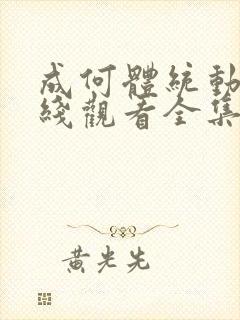 成何體統動
綫觀看全集
黃光先